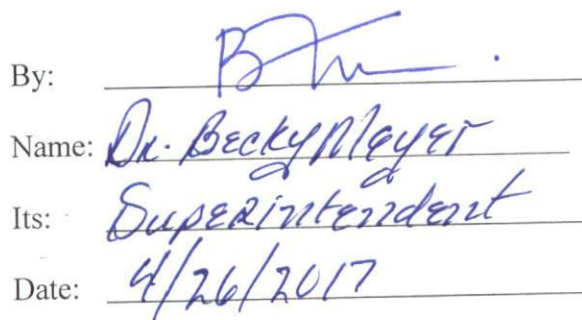 By:
Name: Dr. Becky Meyer
Its: Superintendent
Date: 4/26/2017